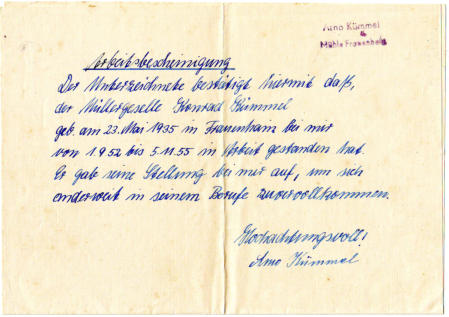 Arno Kümmel
Mühle Frauenhain
Arbeitsbescheinigung
Der Unterzeichnete bestätigt hiermit daß,
der Müllergeselle Konrad Kümmel
geb. am 23. Mai 1935 in Frauenhain bei mir
von 1.9.52 bis 5.11.55 in Arbeit gestanden hat.
Er gab seine Stellung bei mir auf, um sich
anderweit in seinem Berufe zuvervollkommen.
Hochachtungsvoll!
Arno Kümmel